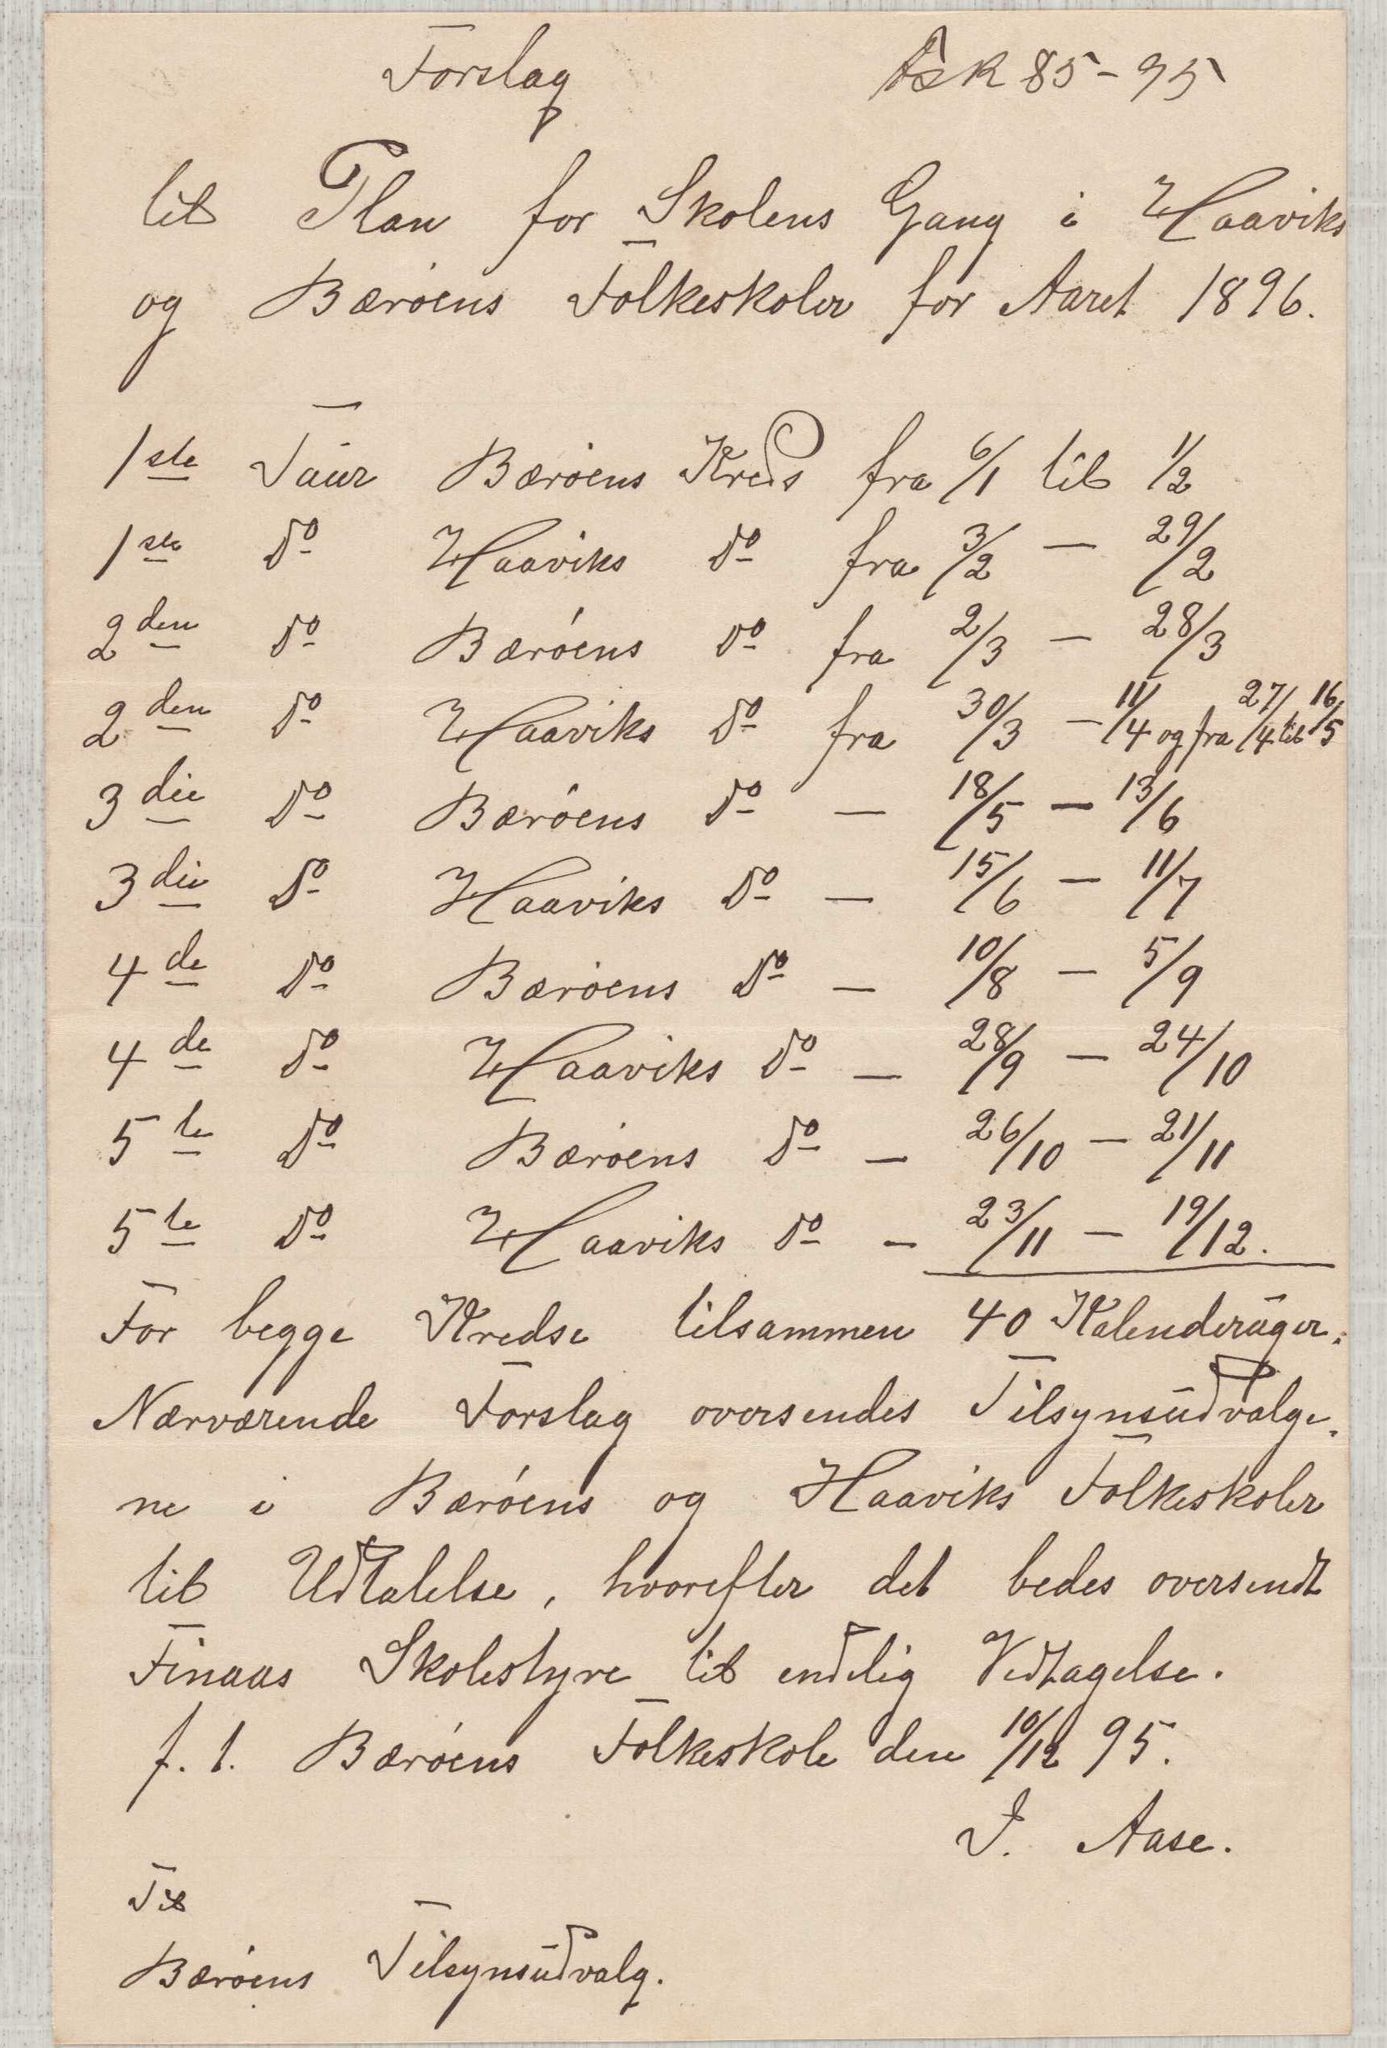 Forslag
85-95
til Plan for Skolens Gang i Haaviks
og Bærøens Folkeskoler for Aaret 1896.
1ste Tuur Bærøens Kreds fra 6/1 til 1/2
1ste Do Haaviks Do fra 3/2 — 29/2
2den Do Bærøens Do fra 2/3 — 28/3
2den Do Haaviks Do fra 30/3 — 11/4 og fra 27/4 til 16/5
3die Do Bærøens Do — 18/5 — 13/6
3die Do Haaviks Do — 15/6 — 11/7
4de Do Bærøens Do — 10/8 — 5/9
4de Do Haaviks Do — 28/9 — 24/10
5te Do Bærøens Do — 26/10 — 21/11
5te Do Haaviks Do — 23/11 — 19/12.
For begge Kredse tilsammen 40 Kalenderuger.
Nærværende Forslag oversendes Tilsynsudvalge-
ne i Bærøens og Haaviks Folkeskoler
til Udtalelse, hvorefter det bedes oversendt
Finaas Skolestyre til endelig Vedtagelse.
f. t. Bærøens Folkeskole den 10/12 95.
J. Aase.
Til
Bærøens Tilsynsudvalg.